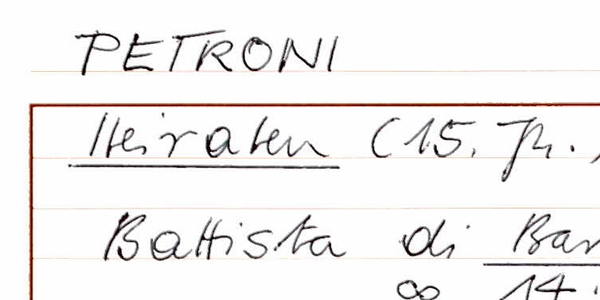 PETRONI
Heiraten (15. Jh.)
Battista di Bar
∞ 14